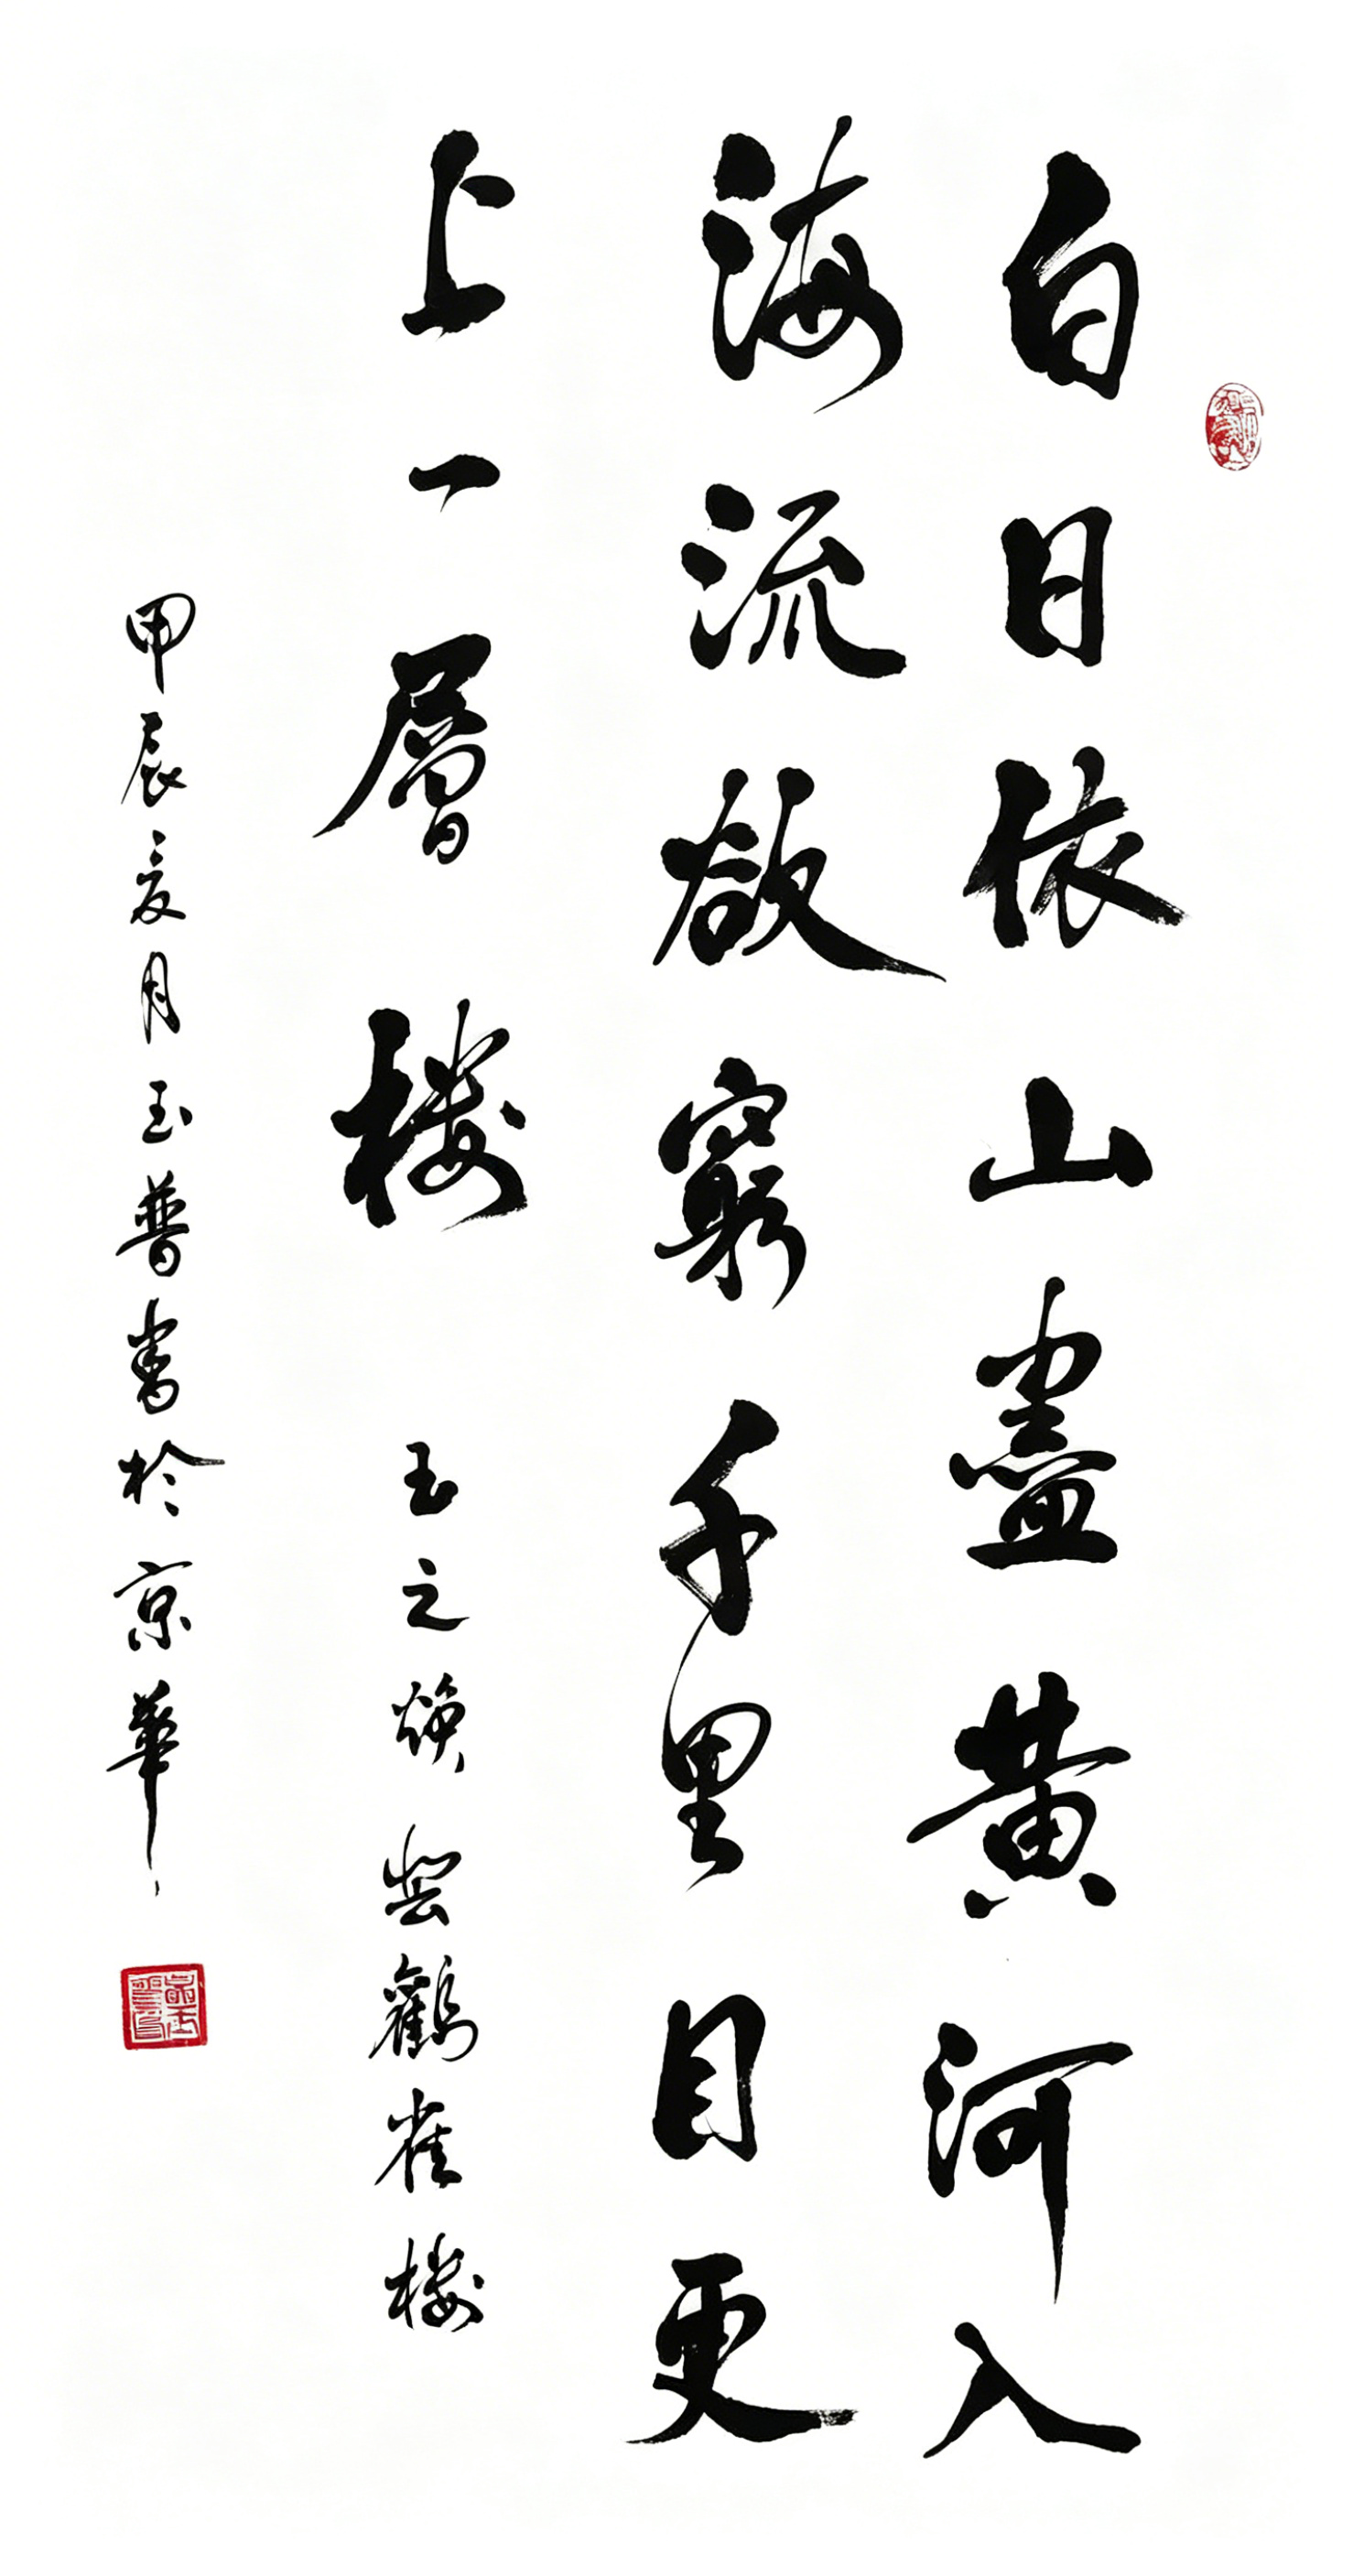 白日依山盡黄河入
海流欲窮千里目更
上一層楼 王之焕登鸛雀楼
甲辰夏月玉普書於京華